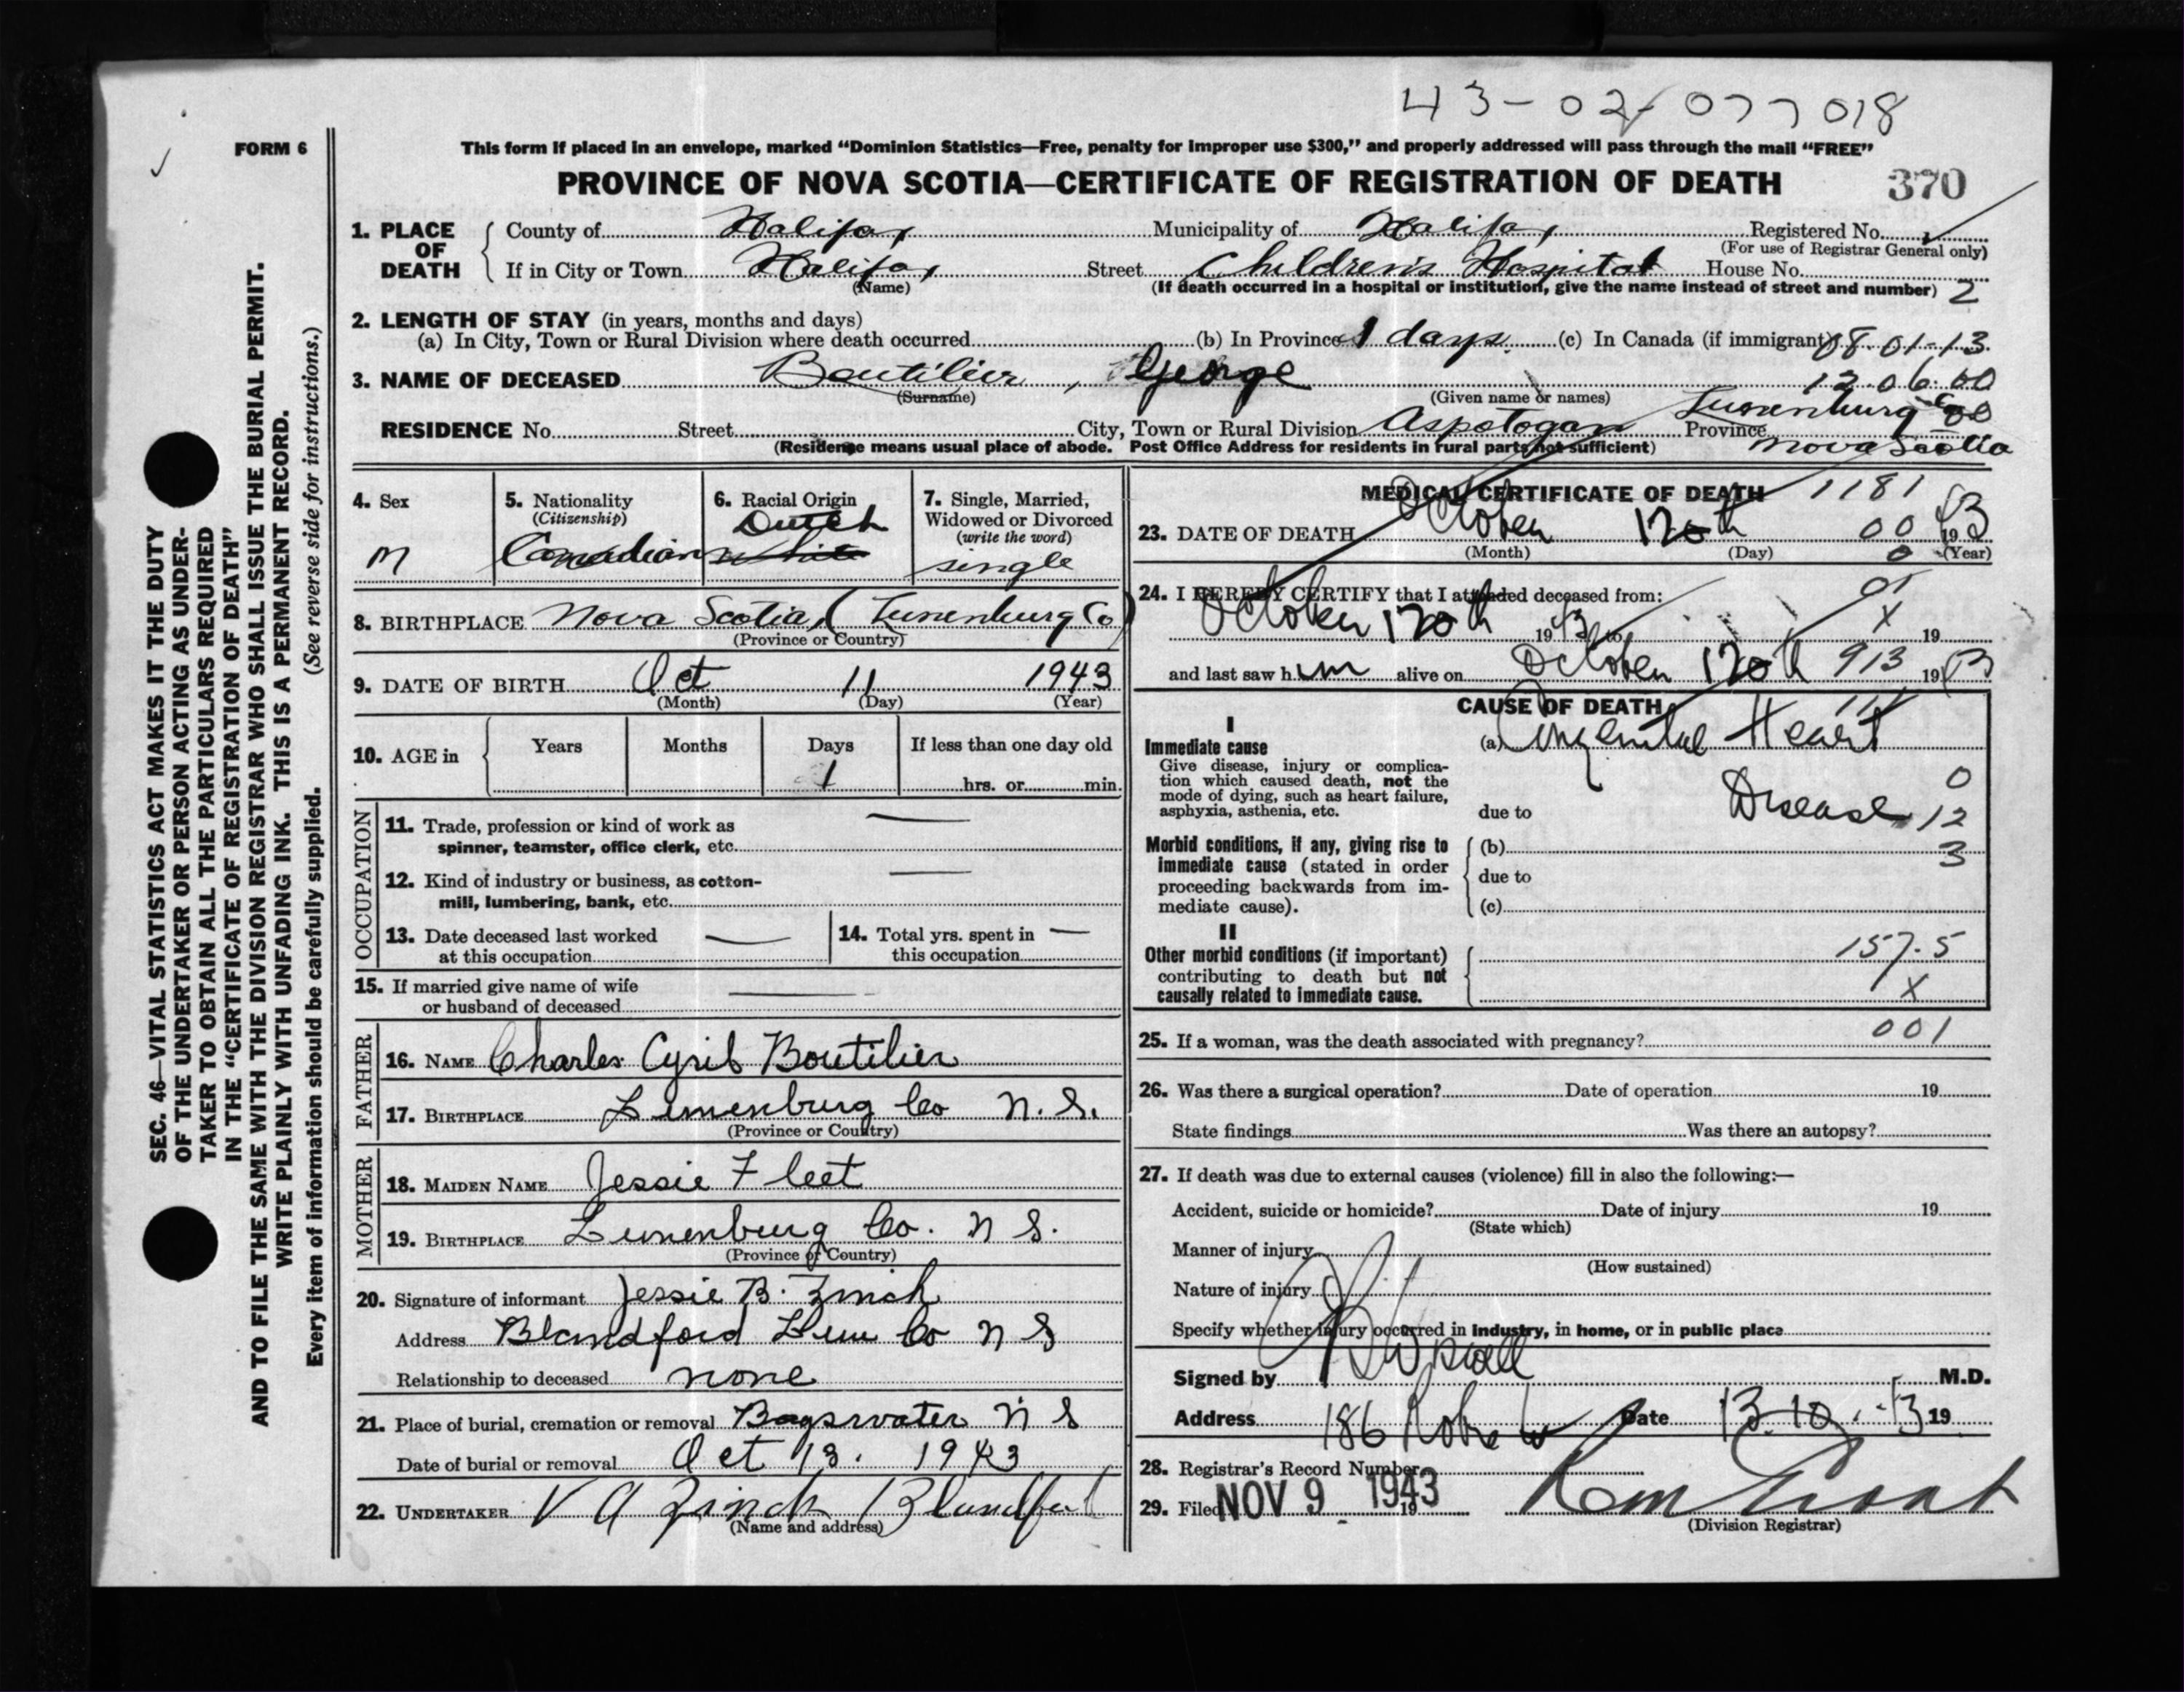 43-02-077018
FORM 6
This form if placed in an envelope, marked "Dominion Statistics—Free, penalty for improper use $300," and properly addressed will pass through the mail "FREE"
PROVINCE OF NOVA SCOTIA—CERTIFICATE OF REGISTRATION OF DEATH 370
1. PLACE OF DEATH County of Halifax Municipality of Halifax Registered No.
(For use of Registrar General only)
If in City or Town Halifax Street Children's Hospital House No.
(Name) (If death occurred in a hospital or institution, give the name instead of street and number) 2
2. LENGTH OF STAY (in years, months and days)
(a) In City, Town or Rural Division where death occurred (b) In Province 1 days (c) In Canada (if immigrant) 08-01-13
3. NAME OF DECEASED Boutilier, George 12.06.00
(Surname) (Given name or names)
RESIDENCE No. Street City, Town or Rural Division Aspotogan Province Lunenburg Co Nova Scotia
(Residence means usual place of abode. Post Office Address for residents in rural parts not sufficient)
4. Sex M
5. Nationality (Citizenship) Canadian
6. Racial Origin Dutch white
7. Single, Married, Widowed or Divorced (write the word) single
8. BIRTHPLACE Nova Scotia, (Lunenburg Co)
(Province or Country)
9. DATE OF BIRTH Oct 11 1943
(Month) (Day) (Year)
10. AGE in Years Months Days If less than one day old
1 hrs. or min.
OCCUPATION
11. Trade, profession or kind of work as
spinner, teamster, office clerk, etc. —
12. Kind of industry or business, as cotton-
mill, lumbering, bank, etc. —
13. Date deceased last worked
at this occupation —
14. Total yrs. spent in
this occupation —
15. If married give name of wife
or husband of deceased —
FATHER
16. NAME Charles Cyril Boutilier
17. BIRTHPLACE Lunenburg Co N.S.
(Province or Country)
MOTHER
18. MAIDEN NAME Jessie Fleet
19. BIRTHPLACE Lunenburg Co. N S.
(Province of Country)
20. Signature of informant Jessie B. Zinck
Address Blandford Lun Co N S
Relationship to deceased none
21. Place of burial, cremation or removal Bayswater N S
Date of burial or removal Oct 13. 1943
22. UNDERTAKER V A Zinck Blandford
(Name and address)
MEDICAL CERTIFICATE OF DEATH 1181
23. DATE OF DEATH October 12th 00 1943
(Month) (Day) 0 (Year)
24. I HEREBY CERTIFY that I attended deceased from: 01
October 12th 1943 to X 19
and last saw him alive on October 12th 913 1943
CAUSE OF DEATH 111
I
Immediate cause (a) Congenital Heart
Give disease, injury or complica-
tion which caused death, not the
mode of dying, such as heart failure,
asphyxia, asthenia, etc. due to Disease 0
12
Morbid conditions, if any, giving rise to (b) 3
immediate cause (stated in order
proceeding backwards from im- due to
mediate cause). (c)
II
Other morbid conditions (if important) 157.5
contributing to death but not
causally related to immediate cause. X
25. If a woman, was the death associated with pregnancy? 001
26. Was there a surgical operation? Date of operation 19
State findings Was there an autopsy?
27. If death was due to external causes (violence) fill in also the following:—
Accident, suicide or homicide? Date of injury 19
(State which)
Manner of injury
(How sustained)
Nature of injury
Specify whether injury occurred in industry, in home, or in public place
Signed by M.D.
Address 186 Date 13-10-43 19
28. Registrar's Record Number
29. Filed NOV 9 1943 19
(Division Registrar)
SEC. 46—VITAL STATISTICS ACT MAKES IT THE DUTY
OF THE UNDERTAKER OR PERSON ACTING AS UNDER-
TAKER TO OBTAIN ALL THE PARTICULARS REQUIRED
IN THE "CERTIFICATE OF REGISTRATION OF DEATH"
AND TO FILE THE SAME WITH THE DIVISION REGISTRAR WHO SHALL ISSUE THE BURIAL PERMIT.
WRITE PLAINLY WITH UNFADING INK. THIS IS A PERMANENT RECORD.
Every item of information should be carefully supplied. (See reverse side for instructions.)